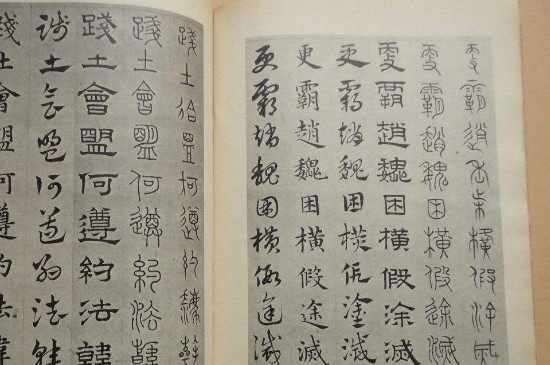 更霸趙魏困橫假途滅
更霸趙魏困橫假途滅
更霸趙魏困橫假涂滅
更霸趙魏困橫假塗滅
更霸趙魏困橫假途滅
更霸趙魏困橫假途滅
踐土會盟何遵約法韓
踐土會盟何遵約法韓
踐土會盟何遵約法韓
踐土會盟何遵約法韓
踐土會盟何遵約法韓